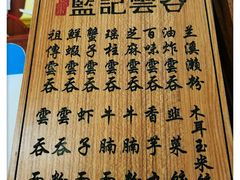 監記雲吞
蘭溪瀨粉
油炸雲吞
百味雲吞
芝麻雲吞
瑤柱雲吞
蟹子雲吞
鮮蝦雲吞
祖傳雲吞
木耳玉米
韭菜
香芋
牛腩
牛腩粉
蝦子
雲吞粉
雲吞